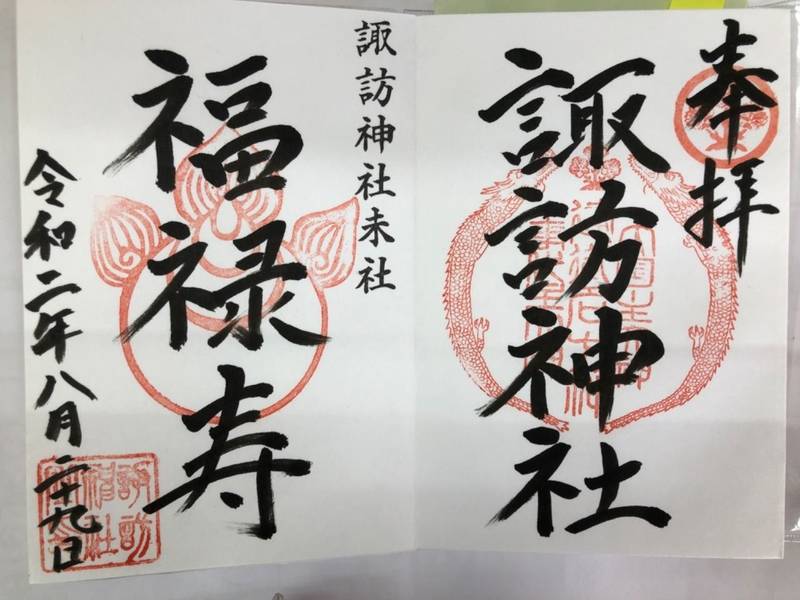 奉拝
諏訪神社
諏訪神社末社
福禄寿
令和二年八月二十九日